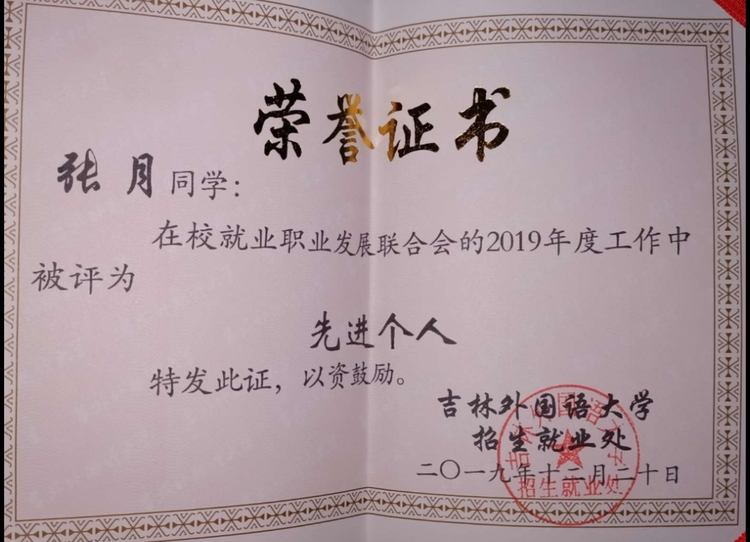 荣誉证书
张月同学：
在校就业职业发展联合会的2019年度工作中
被评为
先进个人
特发此证，以资鼓励。
吉林外国语大学
招生就业处
二〇一九年十二月二十日
吉林外国语大学
招生就业处